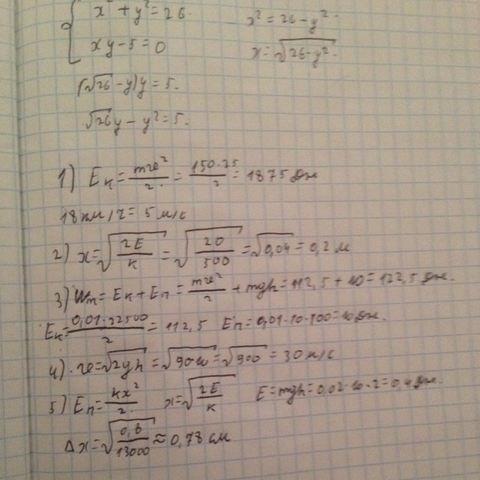 { x² + y² = 26
xy - 5 = 0
x² = 26 - y²
x = √26-y²
(√26 - y)y = 5.
√26y - y² = 5.
1) Eк = mv²/2 = 150·25/2 = 1875 Дж
18 км/ч = 5 м/с
2) x = √2E/k = √20/500 = √0,04 = 0,2 м
3) Wm = Eк + Eп = mv²/2 + mgh = 112,5 + 10 = 122,5 Дж.
Eк = 0,01·22500/2 = 112,5 Eп = 0,01·10·100 = 10 Дж.
4) v = √2gh = √900 = √900 = 30 м/с
5) Eп = kx²/2 x = √2E/k E = mgh = 0,02·10·2 = 0,4 Дж.
Δx = √0,8/13000 ≈ 0,78 см